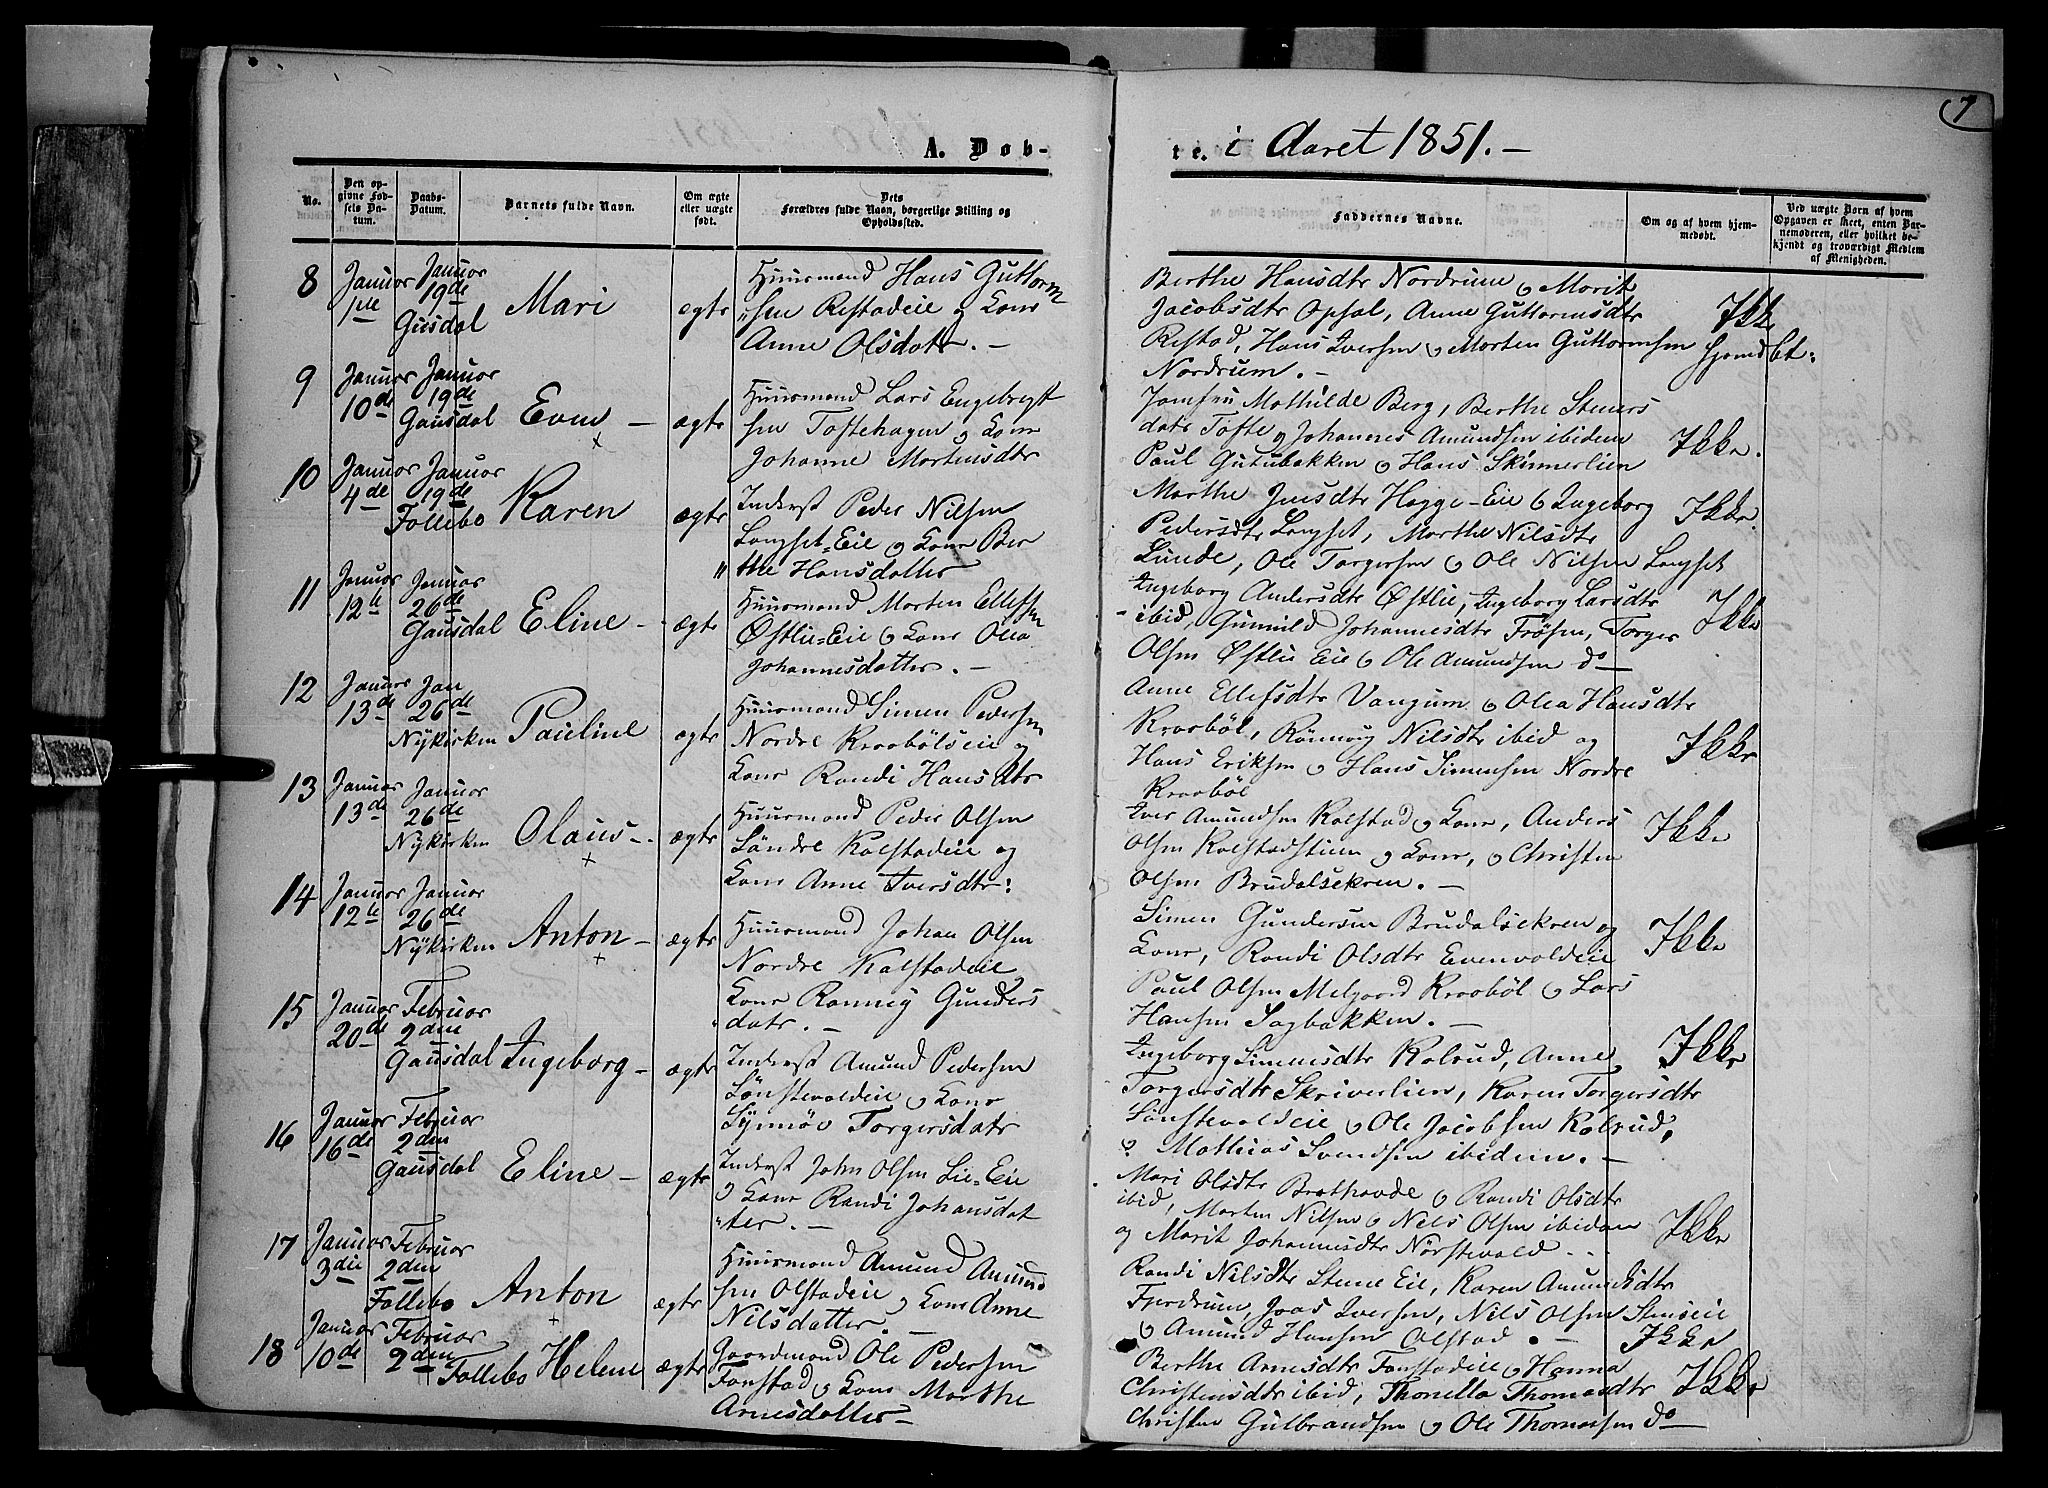 7
A. Døb-
te. i Aaret 1851. -
No.
Den op-
givne Fød-
sels Da-
tum.
Daabs-
Datum.
Barnets fulde Navn.
Om ægte
eller uægte
født.
Dets
Forældres fulde Navn, borgerlige Stilling og
Opholdssted.
Faddernes Navne.
Om og af hvem hjem-
medøbt.
Ved uægte Børn af hvem
Opgaven er skeet, enten Bar-
nemoderen, eller hvilket be-
kjendt og troværdigt Medlem
af Menigheden.
8
Januar
1ste
Januar
19de
Gausdal
Mari
ægte
Huusmand Hans Guttorm
"sen Restadeie og Kone
Anne Olsdatr. -
Berthe Hansdtr Nordrum og Marit
Jacobsdtr Opsal, Anne Guttormsdtr
Restad, Hans Iversen og Morten Guttormsen
Nordrum. -
Ikke
hjemdbt:
9
Januar
10de
Januar
19de
Gausdal
Even -
ægte
Huusmand Lars Engebregt
sen Toftehagen og Kone
Johanne Mortensdtr
Jomfru Mathilde Berg, Berthe Steners
datr Tofte og Johannes Amundsen ibidem
Paul Gutubakken og Hans Skinnerlien
Ikke.
10
Januar
4de
Januar
19de
Follebo
Karen
ægte
Inderst Peder Nilsen
Longset-Eie og Kone Ber
"the Hansdatter
Marthe Jensdtr Hegge-Eie og Ingeborg
Pedersdtr Longset, Marthe Nilsdtr
Lunde, Ole Torgersen og Ole Nilsen Longset
Ikke.
11
Januar
12te
Januar
26de
Gausdal
Eline -
ægte
Huusmand Morten Ellefsen
Østlie-Eie og Kone Olea
Johannesdatter. -
Ingeborg Andersdtr Østlie, Ingeborg Larsdtr
- ibid, Gunnild Johannesdtr Frøsen, Torger
Olsen Østlie Eie og Ole Amundsen do
Ikke
12
Januar
13de
Jan
26de
Nykirken
Pauline
ægte
Huusmand Simen Pedersen
Nordre Kraabølseie og
Kone Randi Hansdtr
Anne Ellefsdtr Vangum og Olea Hansdtr
Kraabøl, Rønnoug Nilsdtr ibid og
Hans Eriksen og Hans Simensen Nordre
Kraabøl
Ikke
13
Januar
13de
Januar
26de
Nykirken
Olaus -
ægte
Huusmand Peder Olsen
Søndre Kalstadeie og
Kone Anne Iversdtr:
Iver Amundsen Kalstad og Kone, Anders
Olsen Kalstadstuen og Kone, og Christen
Olsen Brudalsekren. -
Ikke
14
Januar
12te
Januar
26de
Nykirken
Anton -
ægte
Huusmand Johan Olsen
Nordre Kalstadeie
Kone Ronney Gunders
datr. -
Simen Gundersen Brudalsekren og
Kone, Randi Olsdtr Evenvoldeie
Paul Olsen Melgaard Kraabøl og Lars
Hansen Sagbakken. -
Ikke
15
Januar
20de
Februar
2den
Gausdal
Ingeborg -
ægte
Inderst Amund Pedersen
Sønstevoldeie og Kone
Synnøv Torgersdatr
Ingeborg Simensdtr Kolrud, Anne
Torgersdtr Skriverlien, Karen Torgersdtr
Sønstevoldeie og Ole Jacobsen Kolrud,
og Mathias Svendsen ibidem. -
Ikke
16
Januar
16de
Februar
2den
Gausdal
Eline -
ægte
Inderst John Olsen Lie-Eie
og Kone Randi Johansdat
"ter. -
Mari Olsdtr Brathavde og Randi Olsdtr
ibid, Morten Nilsen og Nils Olsen ibidem
og Marit Johannesdtr Nørstevold - -
Ikke
17
Januar
3die
Februar
2den
Follebo
Anton
ægte
Huusmand Amund Amund
sen Olstadeie og Kone Anne
Nilsdatter. -
Randi Nilsdtr Steneeie, Karen Amundsdtr
Fjerdrum, Joas Iversen, Nils Olsen Stenseie
og Amund Hansen Olstad. -
Ikke
18
Januar
10de
Februar
2den
Follebo
Helene
ægte
Gaardmand Ole Pedersen
Fonstad og Kone Marthe
Arnesdatter -
Berthe Arnesdtr Fonstadeie og Hanna
Christensdtr ibid, Thonetta Thomasdtr
Christen Gulbrandsen og Ole Thomassen do
Ikke